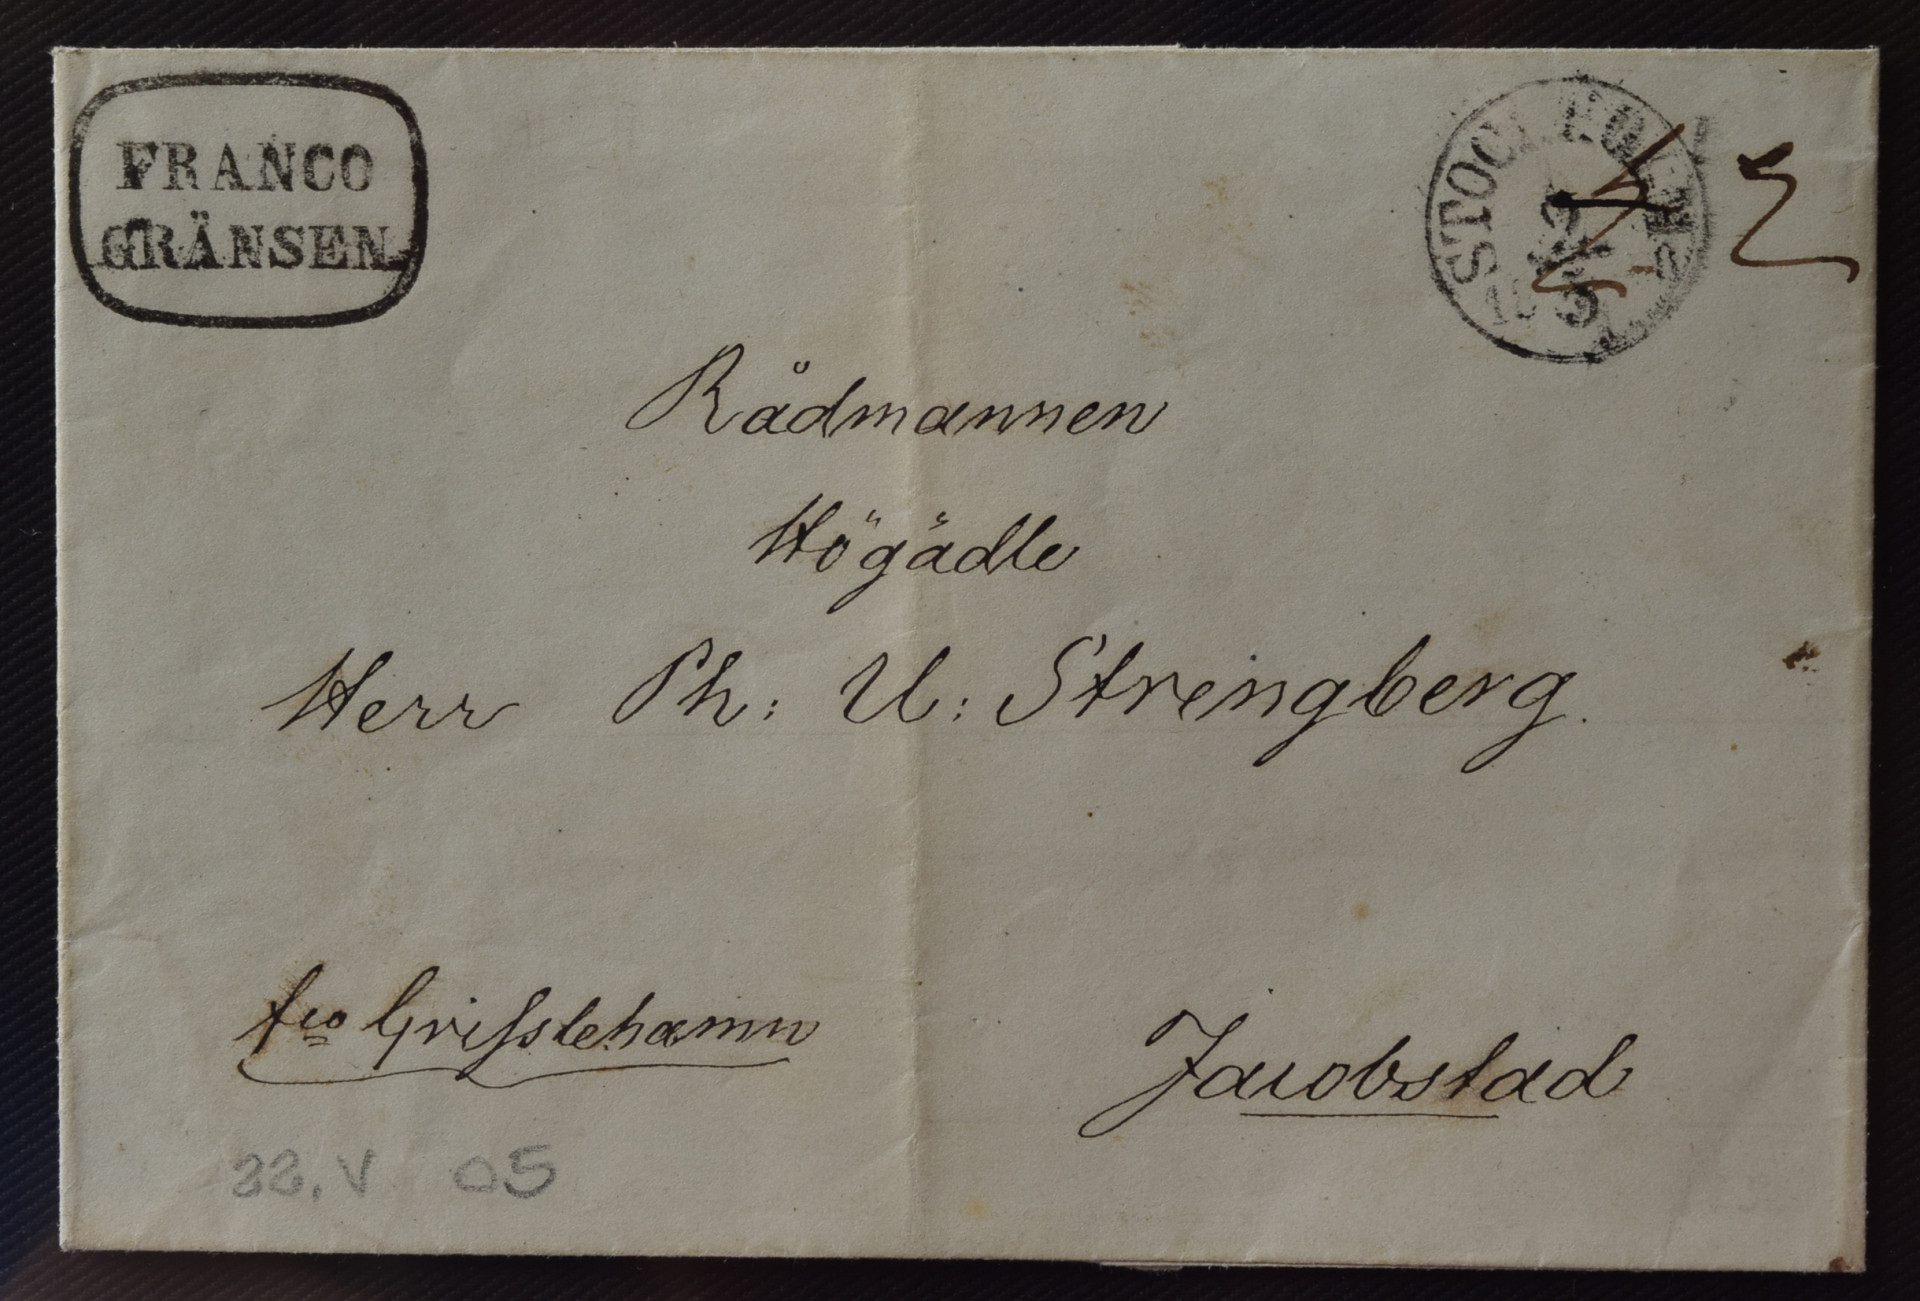 FRANCO
GRÄNSEN
STOCKHOLM
Rådmannen
Högädle
Herr Ph: U: Strengberg.
fco Grisslehamn
Jacobstad